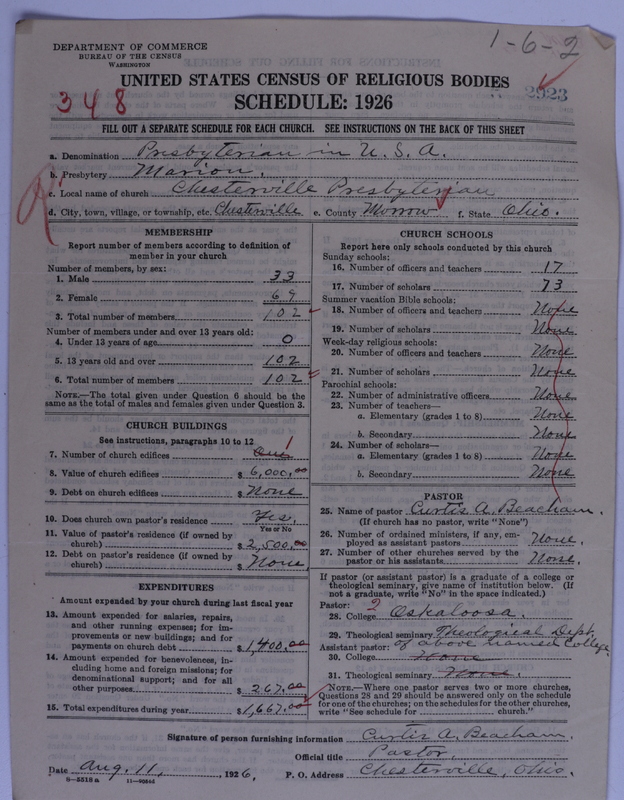 1-6-2
DEPARTMENT OF COMMERCE
BUREAU OF THE CENSUS
WASHINGTON
UNITED STATES CENSUS OF RELIGIOUS BODIES
SCHEDULE: 1926
348
2923
FILL OUT A SEPARATE SCHEDULE FOR EACH CHURCH. SEE INSTRUCTIONS ON THE BACK OF THIS SHEET
a. Denomination Presbyterian in U. S. A.
b. Presbytery Marion.
c. Local name of church Chesterville Presbyterian
d. City, town, village, or township, etc. Chesterville e. County Morrow f. State Ohio.
MEMBERSHIP
Report number of members according to definition of
member in your church
Number of members, by sex:
1. Male 33
2. Female 69
3. Total number of members 102
Number of members under and over 13 years old:
4. Under 13 years of age 0
5. 13 years old and over 102
6. Total number of members 102
NOTE.—The total given under Question 6 should be the
same as the total of males and females given under Question 3.
CHURCH BUILDINGS
See instructions, paragraphs 10 to 12
7. Number of church edifices One 1
8. Value of church edifices $ 6,000.00
9. Debt on church edifices $ None
10. Does church own pastor's residence Yes.
Yes or No
11. Value of pastor's residence (if owned by
church) $ 2,500.00
12. Debt on pastor's residence (if owned by
church) $ None
EXPENDITURES
Amount expended by your church during last fiscal year
13. Amount expended for salaries, repairs,
and other running expenses; for im-
provements or new buildings; and for
payments on church debt $ 1,400.00
14. Amount expended for benevolences, in-
cluding home and foreign missions; for
denominational support; and for all
other purposes $ 267.00
15. Total expenditures during year $ 1,667.00
CHURCH SCHOOLS
Report here only schools conducted by this church
Sunday schools:
16. Number of officers and teachers 17
17. Number of scholars 73
Summer vacation Bible schools:
18. Number of officers and teachers None
19. Number of scholars None
Week-day religious schools:
20. Number of officers and teachers None
21. Number of scholars None
Parochial schools:
22. Number of administrative officers None
23. Number of teachers—
a. Elementary (grades 1 to 8) None
b. Secondary None
24. Number of scholars—
a. Elementary (grades 1 to 8) None
b. Secondary None
PASTOR
25. Name of pastor Curtis A. Beacham.
(If church has no pastor, write "None")
26. Number of ordained ministers, if any, em-
ployed as assistant pastors None.
27. Number of other churches served by the
pastor or his assistants None.
If pastor (or assistant pastor) is a graduate of a college or
theological seminary, give name of institution below. (If
not a graduate, write "No" in the space indicated.)
Pastor: 2
28. College Oskaloosa.
29. Theological seminary Theological Dept
Assistant pastor: of above named College
30. College None
31. Theological seminary None.
NOTE.—Where one pastor serves two or more churches,
Questions 28 and 29 should be answered only on the schedule
for one of the churches; on the schedules for the other churches,
write "See schedule for church."
Signature of person furnishing information Curtis A. Beacham.
Official title Pastor,
Date Aug. 11, 1926. P. O. Address Chesterville, Ohio.